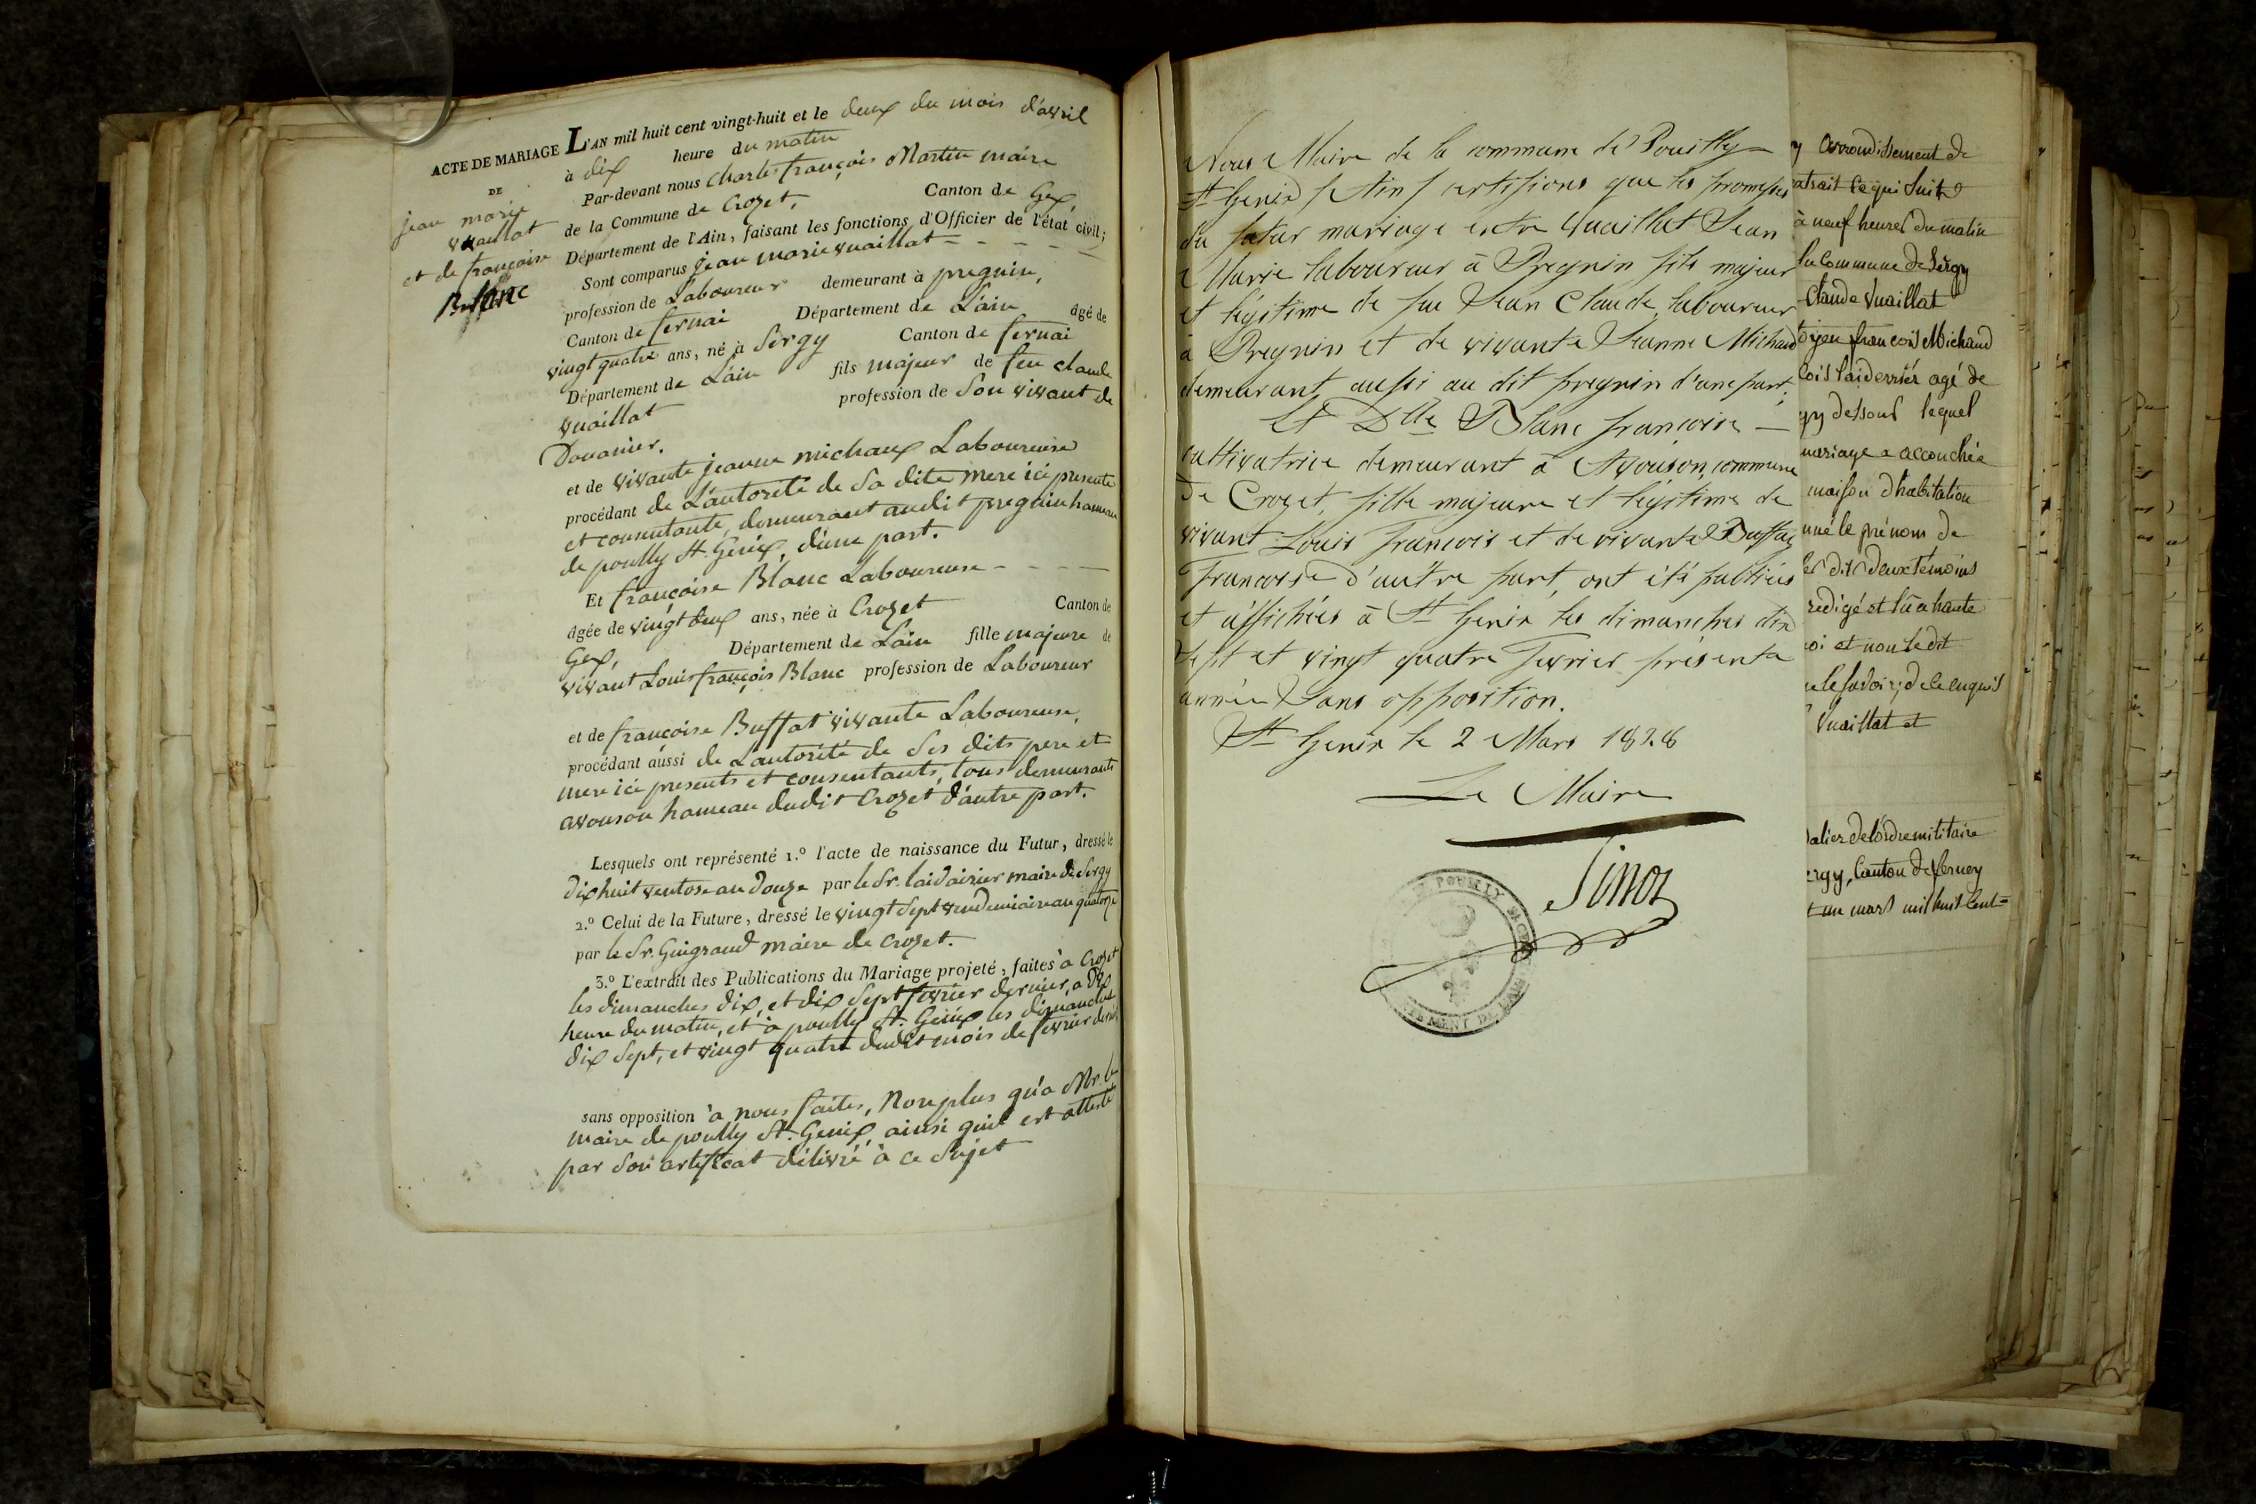 ACTE DE MARIAGE
DE
jean marie
vuaillat
et de françoise
Blanc
L'AN mil huit cent vingt-huit et le deux du mois d'avril
à dix heure du matin
Par-devant nous charles françois Martin maire
de la Commune de Crozet, Canton de Gex,
Département de l'Ain, faisant les fonctions d'Officier de l'état civil;
Sont comparus jean marie vuaillat
profession de Laboureur demeurant à pregnin,
Canton de fernai Département de L'ain âgé de
vingt quatre ans, né à Sergy Canton de fernai
Département de L'ain fils majeur de feu claude
vuaillat profession de Son vivant de
Douanier.
et de vivante jeanne michaux Laboureuse
procédant de L'autorité de Sa dite mere ici presente
et consentante, demeurant audit pregnin hameau
de pouilly St. Genix, d'une part.
Et françoise Blanc Laboureuse
âgée de vingt deux ans, née à Crozet Canton de
Gex, Département de L'ain fille majeure de
vivant Louis françois Blanc profession de Laboureur
et de françoise Buffat vivante Laboureuse,
procédant aussi de L'autorité de Ses dits pere et
mere ici presents et consentants, tous demeurants
avouson hameau dudit Crozet d'autre part.
Lesquels ont représenté 1.º l'acte de naissance du Futur, dressé le
dix huit ventose an douze par le Sr. laidairier maire de Sergy
2.º Celui de la Future, dressé le vingt Sept vendemiaire an quatorze
par le Sr. Guigraud maire de Crozet.
3.º L'extrait des Publications du Mariage projeté, faites à Crozet
les dimanches dix, et dix Sept fevrier dernier, a dix
heure du matin, et à pouilly St. Genix les dimanches
dix Sept, et vingt quatre dudit mois de fevrier dernier
sans opposition à nous faites, Non plus qu'a Mr. le
maire de pouilly St. Genix, ainsi quil est attesté
par Son certificat délivré à ce Sujet
Nous Maire de la commune de Pouilly
St Genix / Ain / certifions que les promesses
du futur mariage entre Vuaillat Jean
Marie laboureur à Pregnin fils majeur
et légitime de feu Jean Claude, laboureur
à Pregnin et de vivante Jeanne Michaud
demeurant aussi au dit pregnin d'une part;
Et Dlle Blanc françoise
cultivatrice demeurant à Avouson, commune
de Crozet, fille majeure et légitime de
vivant Louis François et de vivante Buffaz
Françoise d'autre part, ont été publiées
et affichées à St Genix les dimanches dix
sept et vingt quatre Fevrier présente
année Sans opposition.
St Genix le 2 Mars 1828
Le Maire
POUILLY St GENIX
DE L'AIN
arrondissement de
ce qui suit
à neuf heures du matin
la Commune de Sergy
Claude Vuaillat
françois Michaud
laiderrier agé de
dessous lequel
mariage a accouchée
maison d'habitation
le prénom de
dits deux témoins
redigé et lu a haute
et nous le dit
le savoir, de le enquis
Vuaillat et
de l'ordre militaire
Canton de ferney
un mars mil huit cent